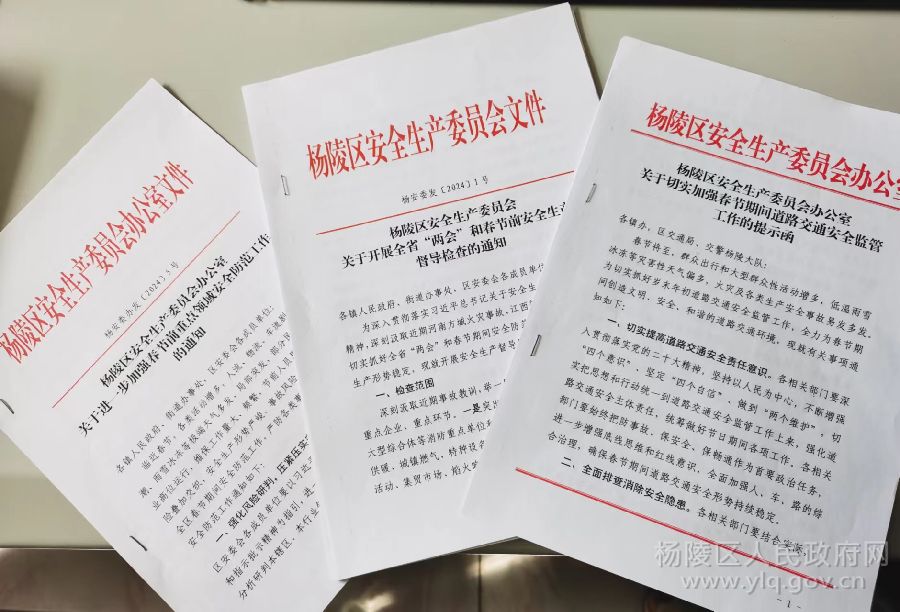 杨陵区安全生产委员会办公室文件
杨安委办发〔2024〕5号
杨陵区安全生产委员会办公室
关于进一步加强春节前重点领域安全防范工作
的通知
各镇人民政府、街道办事处、区安委会各成员单位:
临近春节,各类活动增多,人流、物流、车流
全区春节期间安全防范工作,严防各类事
安全防范工作通知如下:
一、强化风险研判,压紧压实
区安委会各成员单位要以习近
和指示批示精神为指引,进
分析研判本辖区、本行业
杨陵区安全生产委员会文件
杨安委发〔2024〕1号
杨陵区安全生产委员会
关于开展全省“两会”和春节前安全生产
督导检查的通知
各镇人民政府、街道办事处、区安委会各成员单位
为深入贯彻落实习近平总书记关于安全生
精神,深刻汲取近期河南方城火灾事故、江西
切实抓好全省“两会”和春节期间安全防
生产形势稳定,现就开展安全生产督导
一、检查范围
深刻汲取近期事故教训,举一
重点企业、重点环节。一是突出
大型综合体等消防重点单位
供暖、城镇燃气、特种设备
活动、集贸市场、焰火
杨陵区安全生产委员会办公室
杨陵区安全生产委员会办公室
关于切实加强春节期间道路交通安全监管
工作的提示函
各镇办,区交通局、交警杨陵大队:
春节将至,群众出行和大型群众性活动增多,低温雨雪
冰冻等灾害性天气偏多,火灾及各类生产安全事故易发多发。
为切实抓好岁末年初道路交通安全监管工作,全力为春节期
间创造文明、安全、和谐的道路交通环境,现就有关事项通
知如下:
一、切实提高道路交通安全责任意识。各相关部门要深
入贯彻落实党的二十大精神,坚持以人民为中心,不断增强
“四个意识”、坚定“四个自信”、做到“两个维护”,切
实把思想和行动统一到道路交通安全监管工作上来,强化道
路交通安全主体责任,统筹做好节日期间各项工作。各相关
部门要始终把防事故、保安全、保畅通作为首要政治任务,
进一步增强底线思维和红线意识,全面加强人、车、路的综
合治理,确保春节期间道路交通安全形势持续稳定。
二、全面排查消除安全隐患。各相关部门要结合实
- 1 -
杨陵区人民政府网
www.ylq.gov.cn